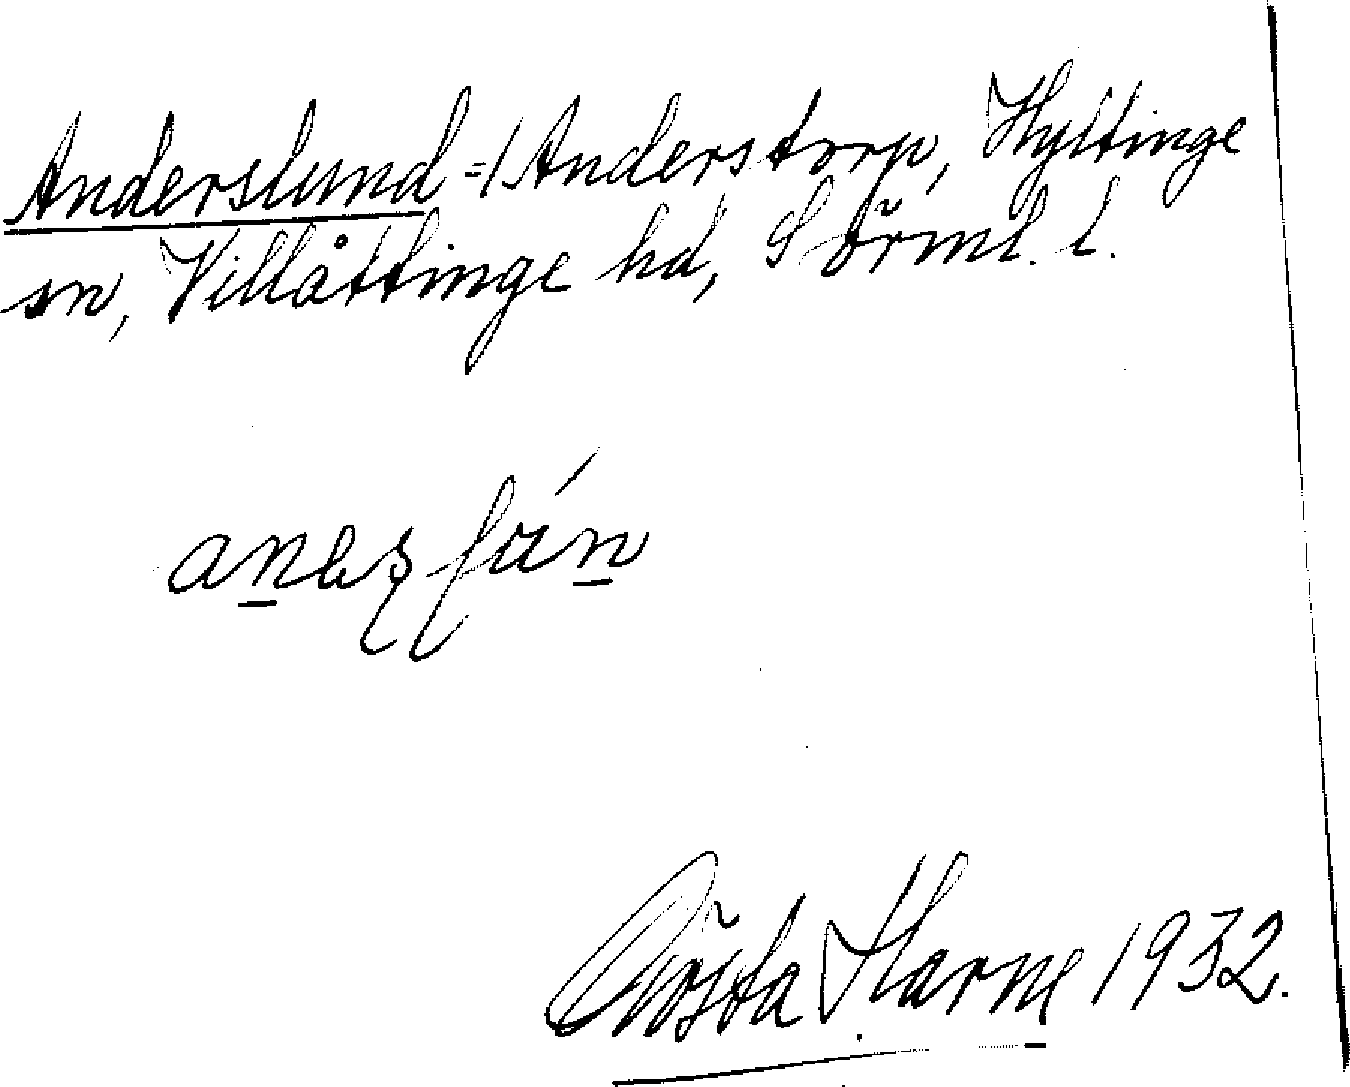 Anderslund = / Anderstorp, Hyltinge
sn, Villåttinge hd, Sörml. l.
Gösta Harne 1932.